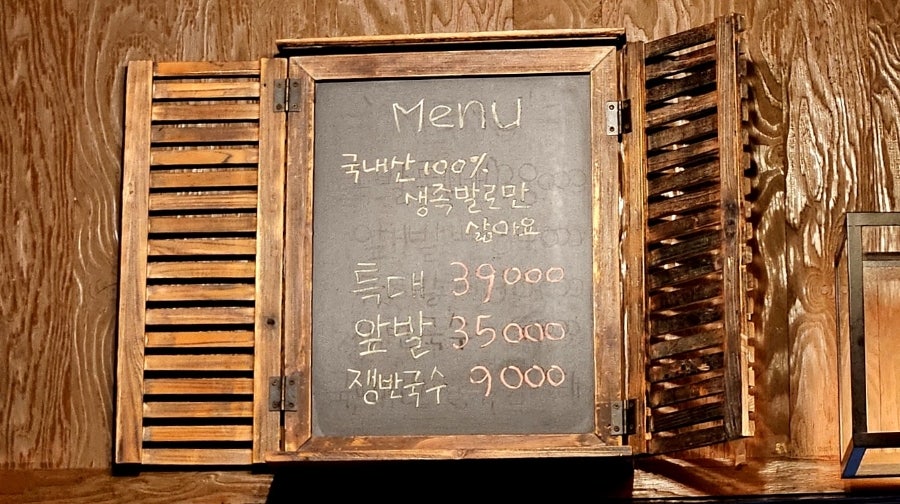 Menu
국내산 100%
생족발로만
삶아요
특대 39000
앞발 35000
쟁반국수 9000